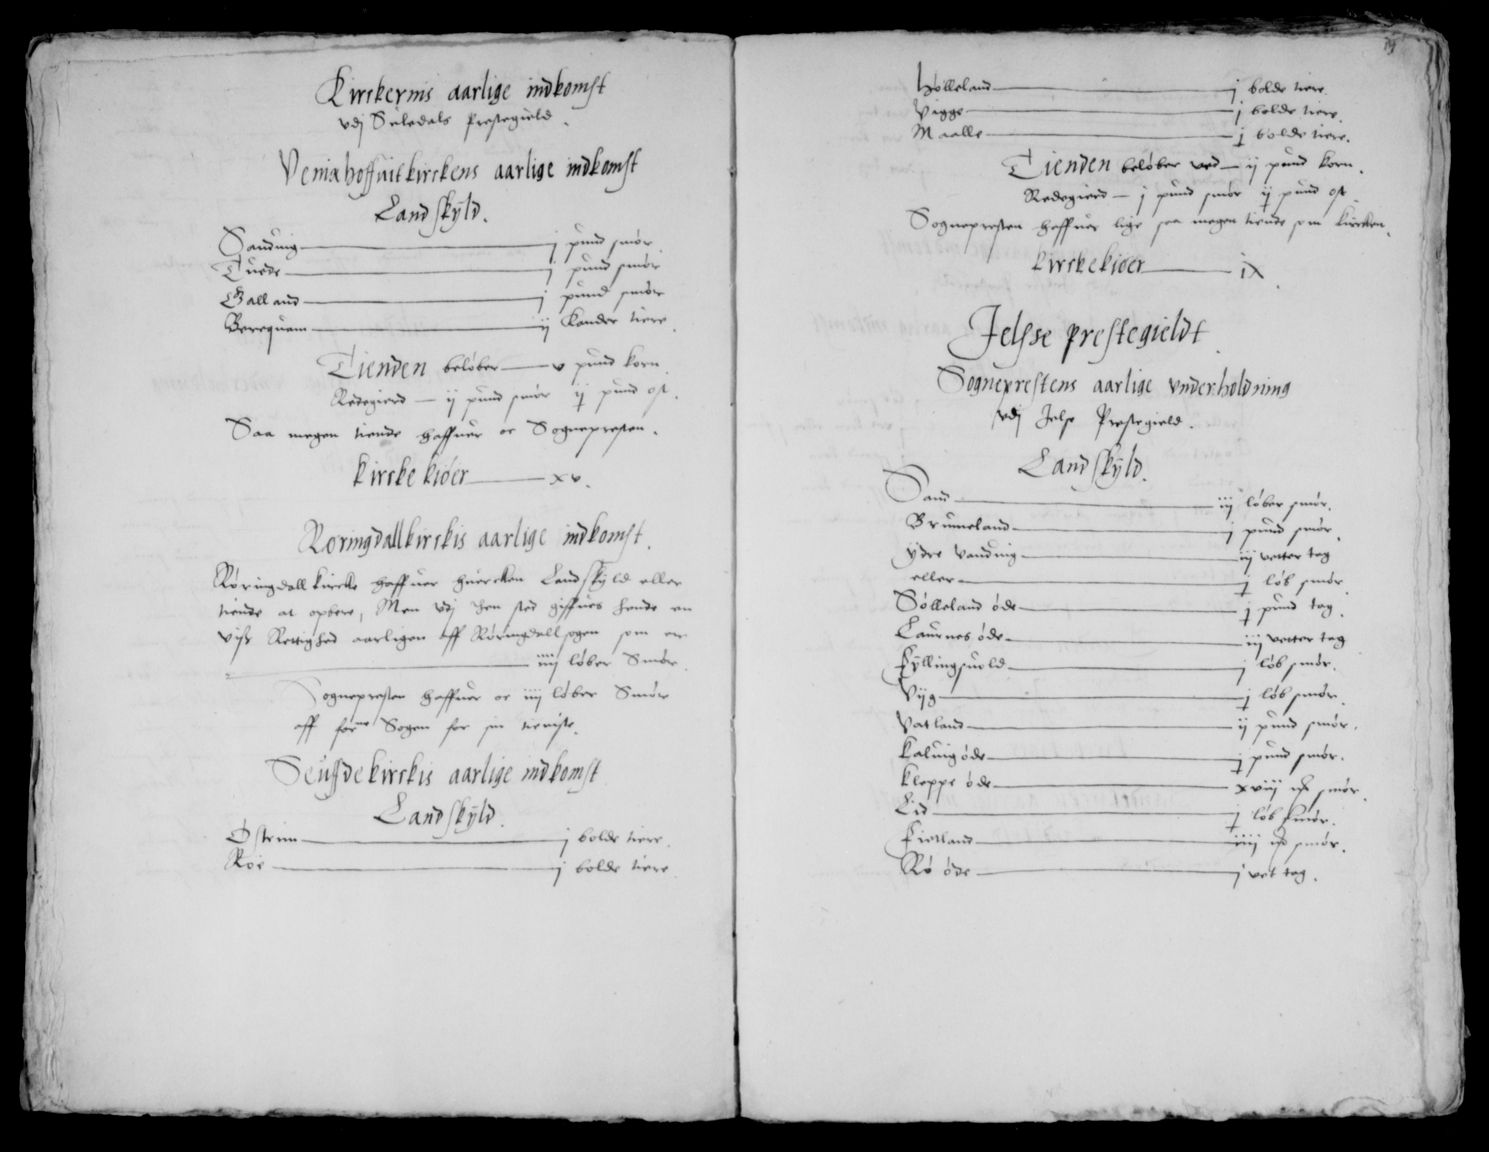 Kirckernis aarlige indkomst
vdj Suledals Prestegield.
Veniahoffuitkirckens aarlige indkomst
Landskÿld.
Sanduig j pund smør.
Tuede j pund smør
Galland j pund smør
Berequam ij kander tiere.
Tienden beløber v pund korn.
Redegierd ij pund smør ij pund ost.
Saa megen tiende haffuer oc Sognepresten.
kirckekiøer xv.
Røringdallkirckis aarlige indkomst.
Røringdall kircke haffuer huercken Landskÿld eller
tiende at opbere, Men vdj then sted giffues hende en
viss Rettighed aarligen aff Røringdallsogen som er
iiij løber Smør.
Sognepresten haffuer oc iiij løber Smør
aff forne Sogen for sin tieniste.
Seuffdekirckis aarlige indkomst
Landskÿld.
Østenn j bolde tiere.
Roe j bolde tiere.
Hølleland j bolde tiere.
Vigge j bolde tiere.
Maalle j bolde tiere.
Tienden beløber ved ij pund korn.
Redegierd j pund smør ij pund ost.
Sognepresten haffuer lige saa megen tiende som kircken.
kirckekiøer ix.
Jelsse prestegieldt.
Sogneprestens aarlige vnderholdning
vdj Jelse Prestegield.
Landskÿld.
Sand iij løber smør.
Bruneland j pund smør.
ÿdre Vanduig iij vetter tag
eller j løb smør.
Sølleland øde j pund tag.
Laurnes øde iij vetter tag
Fÿllingsuold j løb smør.
Vijg j løb smør.
Vatland ij pund smør.
Kaluig øde j pund smør.
Kleppe øde xviij mk smør.
Lid j løb smør.
Fietland iiij mk smør.
Rø øde j vet tag.